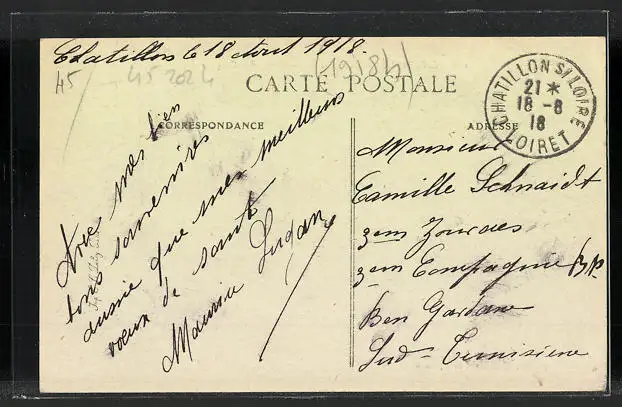 Chatillon le 18 Aout 1918.
45 45 2024 (1918h)
CARTE POSTALE
CHATILLON S/LOIRE
21 *
18 - 8
18
LOIRET
CORRESPONDANCE
ADRESSE
Avec mes bien
bons souvenirs
aussi que mes meilleurs
voeux de santé
Maurice Lugan
Monsieur
Camille Schnaidt
3em Zouaves
3em Compagnie
Ben Gardane
Sud-Tunisiene